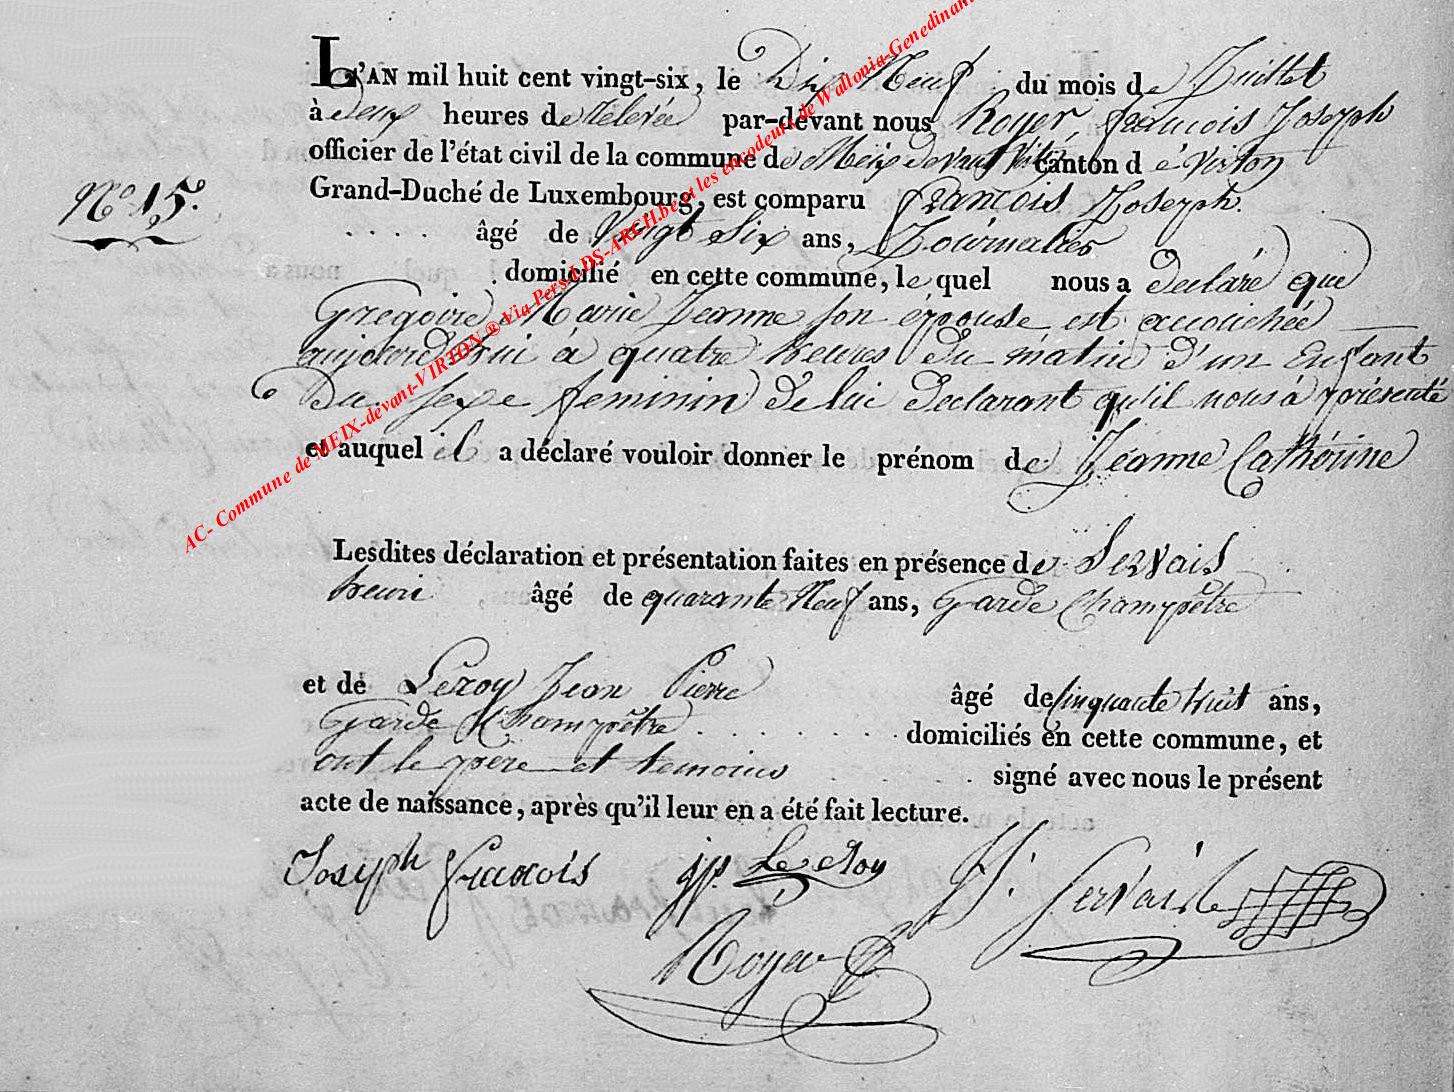 L'AN mil huit cent vingt-six, le Dix Neuf du mois de Juillet
à deux heures de relevée par-devant nous Royer, françois Joseph
officier de l'état civil de la commune de Meix devant Virton canton d e Virton
N° 15.
Grand-Duché de Luxembourg, est comparu François Joseph.
âgé de Vingt Six ans, Journalier
domicilié en cette commune, le quel nous a declaré que
Gregoire Marie Jeanne son épouse est accouchée
aujourd'hui à quatre heures du matin d'un Enfant
Du sexe feminin de lui declarant qu'il nous à présenté
et auquel il a déclaré vouloir donner le prénom de Jeanne Cathérine
Lesdites déclaration et présentation faites en présence de Servais
henri âgé de quarante Neuf ans, Garde Champêtre
et de Leroy Jean Pierre âgé de Cinquante huit ans,
Garde Champêtre domiciliés en cette commune, et
ont le père et temoins signé avec nous le présent
acte de naissance, après qu'il leur en a été fait lecture.
Joseph françois jp. Le Roy H. Servais
Royer
AC- Commune de MEIX-devant-VIRTON ® Via Pers-LDS-ARCH.be et les encodeurs de Wallonia-Genedinant